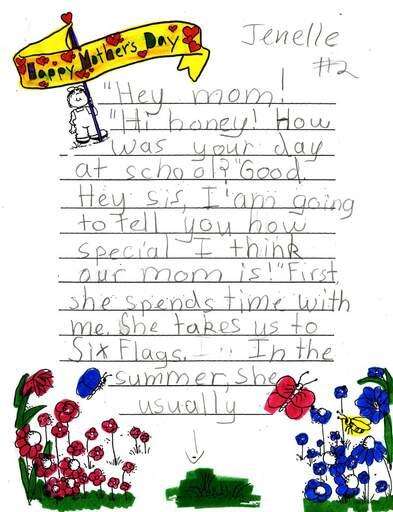 Happy Mother's Day
Jenelle
#2
"Hey mom!
"Hi honey! How
was your day
at school?" "Good.
Hey sis, I am going
to tell you how
special I think
our mom is!" First,
she spends time with
me. She takes us to
Six Flags. In the
summer, she
usually